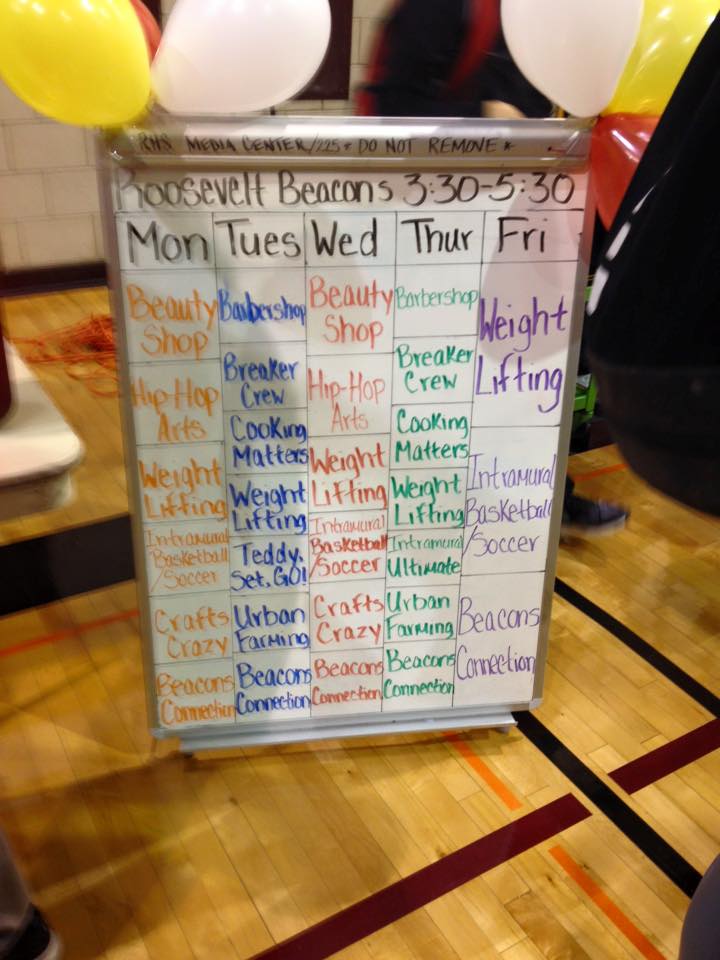 RHS MEDIA CENTER/225 * DO NOT REMOVE *
Roosevelt Beacons 3:30-5:30
Mon Tues Wed Thur Fri
Beauty
Shop
Hip-Hop
Arts
Weight
Lifting
Intramural
Basketball
/Soccer
Crafts
Crazy
Beacons
Connection
Barbershop
Breaker
Crew
Cooking
Matters
Weight
Lifting
Teddy.
Set.GO!
Urban
Farming
Beacons
Connection
Beauty
Shop
Hip-Hop
Arts
Weight
Lifting
Intramural
Basketball
/Soccer
Crafts
Crazy
Beacons
Connection
Barbershop
Breaker
Crew
Cooking
Matters
Weight
Lifting
Intramural
Ultimate
Urban
Farming
Beacons
Connection
Weight
Lifting
Intramural
Basketball
/Soccer
Beacons
Connection